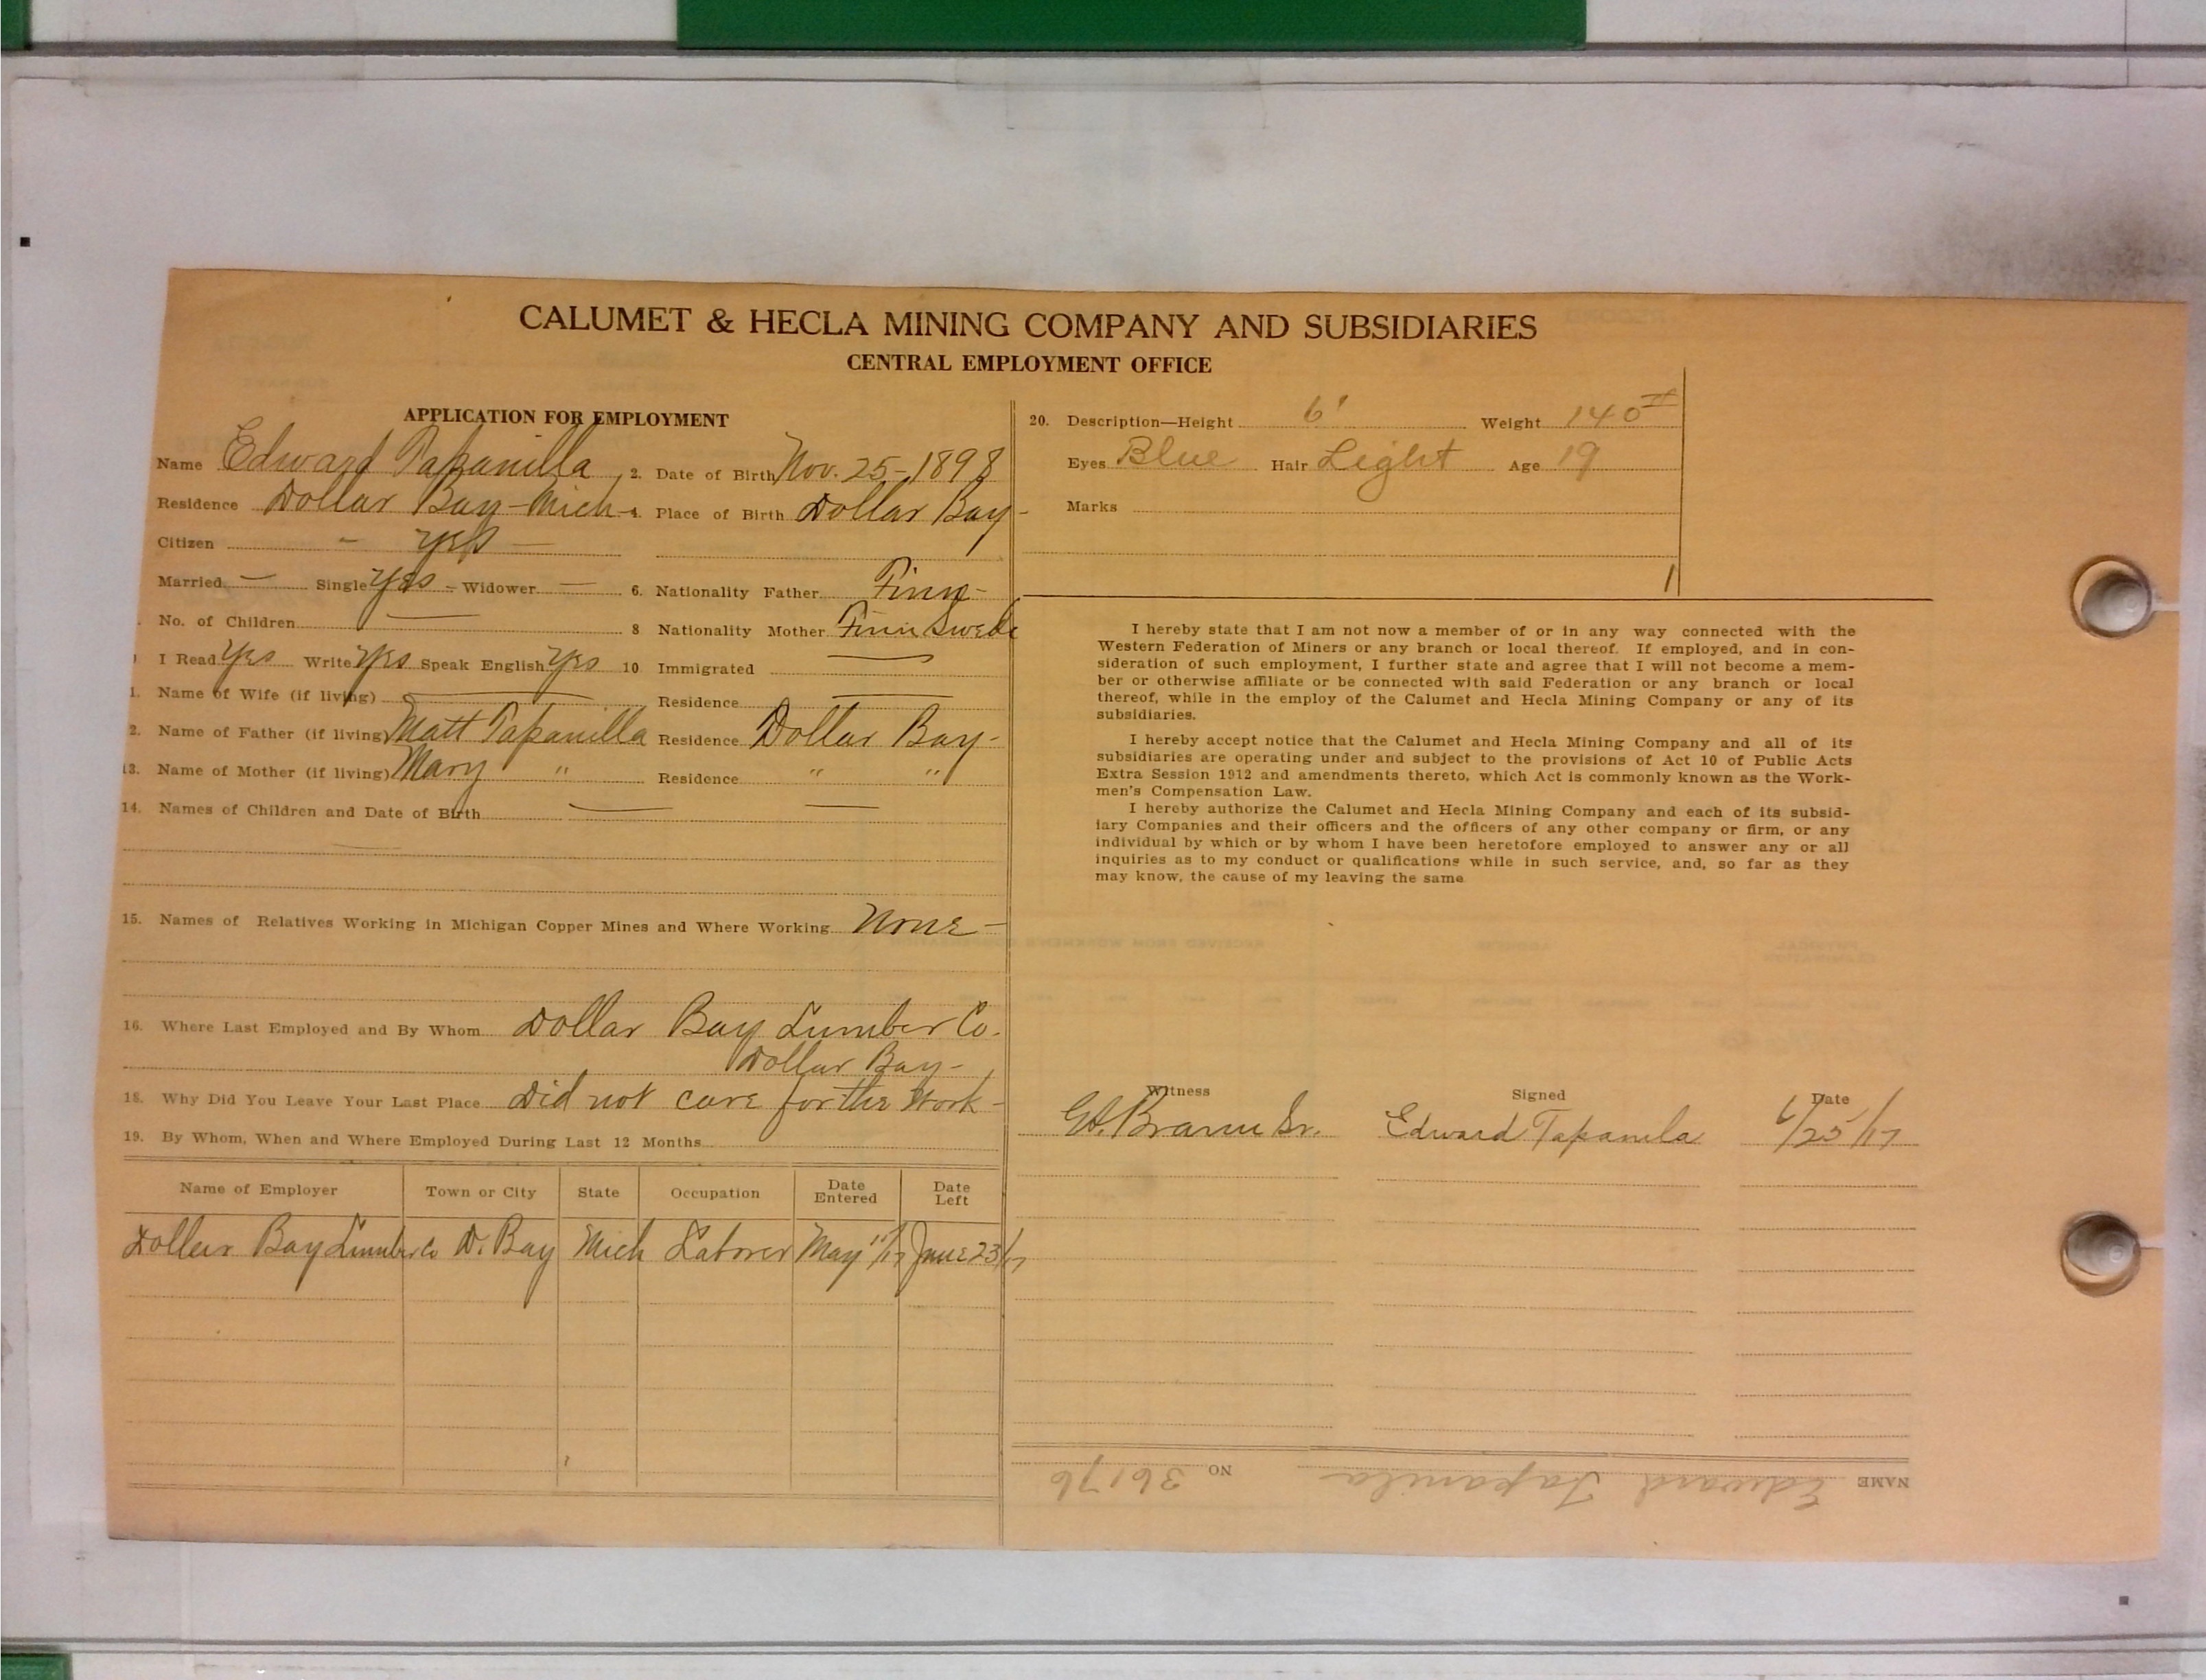 CALUMET & HECLA MINING COMPANY AND SUBSIDIARIES
CENTRAL EMPLOYMENT OFFICE
APPLICATION FOR EMPLOYMENT
Name Edward Tapanilla 2. Date of Birth Nov. 25-1898
Residence Dollar Bay-Mich- 4. Place of Birth Dollar Bay-
Citizen - yes -
Married — Single Yes - Widower — 6. Nationality Father Finn-
No. of Children — 8 Nationality Mother Finn Swede
I Read Yes Write Yes Speak English Yes 10 Immigrated —
1. Name of Wife (if living) — Residence —
2. Name of Father (if living) Matt Tapanilla Residence Dollar Bay-
13. Name of Mother (if living) Mary " Residence " "
14. Names of Children and Date of Birth — —
15. Names of Relatives Working in Michigan Copper Mines and Where Working None-
16. Where Last Employed and By Whom Dollar Bay Lumber Co.
Dollar Bay-
18. Why Did You Leave Your Last Place Did not care for the Work-
19. By Whom, When and Where Employed During Last 12 Months
Name of Employer Town or City State Occupation Date Entered Date Left
Dollar Bay Lumber Co D. Bay Mich Laborer May 11/17 June 23/17
20. Description—Height 6' Weight 140#
Eyes Blue Hair Light Age 19
Marks
I hereby state that I am not now a member of or in any way connected with the
Western Federation of Miners or any branch or local thereof. If employed, and in con-
sideration of such employment, I further state and agree that I will not become a mem-
ber or otherwise affiliate or be connected with said Federation or any branch or local
thereof, while in the employ of the Calumet and Hecla Mining Company or any of its
subsidiaries.
I hereby accept notice that the Calumet and Hecla Mining Company and all of its
subsidiaries are operating under and subject to the provisions of Act 10 of Public Acts
Extra Session 1912 and amendments thereto, which Act is commonly known as the Work-
men's Compensation Law.
I hereby authorize the Calumet and Hecla Mining Company and each of its subsid-
iary Companies and their officers and the officers of any other company or firm, or any
individual by which or by whom I have been heretofore employed to answer any or all
inquiries as to my conduct or qualifications while in such service, and, so far as they
may know, the cause of my leaving the same
Witness Signed Date
Sr. Edward Tapanila 6/25/17
NAME Edward Tapanila NO 36176